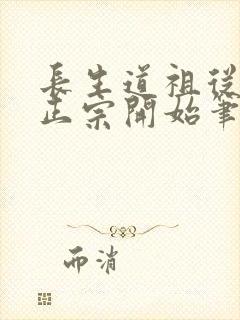 長生道祖從
正宗開始筆
而消